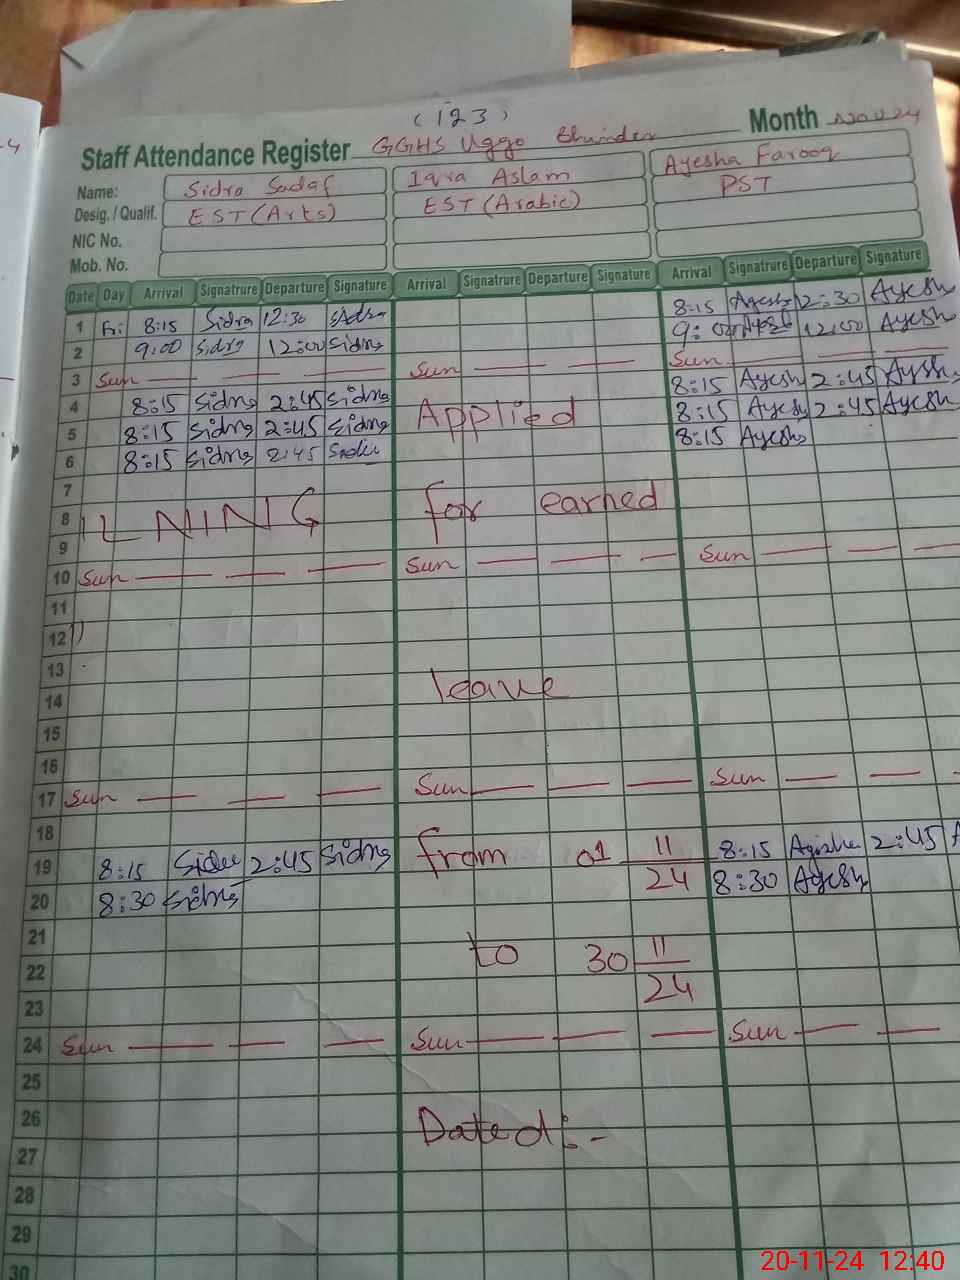 (123)
Staff Attendance Register GGHS Uggo Bhinder Month Nov 24
Name: Sidra Sadaf Iqra Aslam Ayesha Farooq
Desig. / Qualif. EST (Arts) EST (Arabic) PST
NIC No.
Mob. No.
Date Day Arrival Signatrure Departure Signature Arrival Signatrure Departure Signature Arrival Signatrure Departure Signature
1 Fri 8:15 Sidra 12:30 Sidra 8:15 Ayesh 12:30 Ayesh
2 9:00 Sidra 12:00 Sidra 9:00 12:00 Ayesh
3 Sun Sun Sun
4 8:15 Sidra 2:45 Sidra Applied 8:15 Ayesh 2:45 Ayesh
5 8:15 Sidra 2:45 Sidra 8:15 Ayesh 2:45 Ayesh
6 8:15 Sidra 2:45 8:15 Ayesh
7
8 for earned
9
10 Sun Sun Sun
11
12
13
14 leave
15
16
17 Sun Sun Sun
18
19 8:15 2:45 Sidra from 01 11/24 8:15 Ayesha 2:45 A
20 8:30 Sidra 8:30 Ayesh
21
22 to 30 11/24
23
24 Sun Sun Sun
25
26
27 Dated:-
28
29
30
20-11-24 12:40